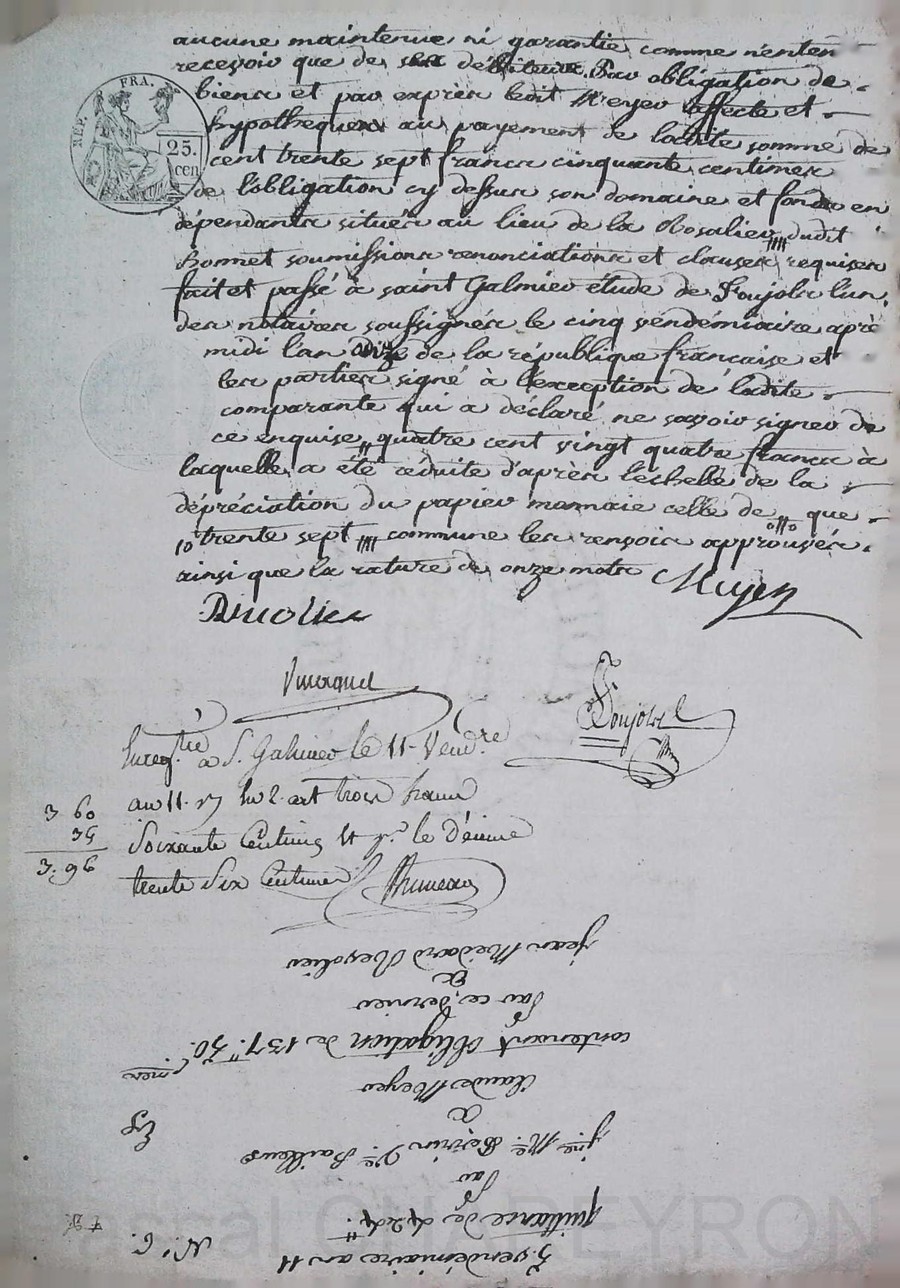 aucune maintenue ni garantie comme n'enten
recevoir que de débiteur. Par obligation de
biens et par exprès ledit Meyer affecte et
hypothequer au payement de ladite somme de
cent trente sept francs cinquante centimes
de l'obligation cy dessus son domaine et fonds en
dépendants situés au lieu de la Rosalier dudit
Bonnet soumissions renonciations et clauses requises
fait et passé à saint Galmier étude de Poujols l'un
des notaires soussignés le cinq vendémiaire après
midi l'an de la république française et
les parties signé à l'exception de ladite
comparante qui a déclaré ne savoir signer de
ce enquise quatre cent vingt quatre francs à
laquelle a été réduite d'après l'échelle de la
dépréciation du papier monnaie celle de que
trente sept commune les renvois approuvés
ainsi que la rature de onze mots Meyer
Poujols
Enreg.tré à S. Galmier le 11 Vend.re
3 60 an 11 trois francs
36 Soixante Centimes et p.r le Décime
3.96 trente Six Centimes
REP. FRA.
25.
cen
3. vendémiaire an 11
N.° 6.
quittance de 424.tt
Par
V.e
à
Claude Meyer
contenant obligation de 137.tt 50.
Par ce dernier
à
jean Medard
Pascal CHAREYRON